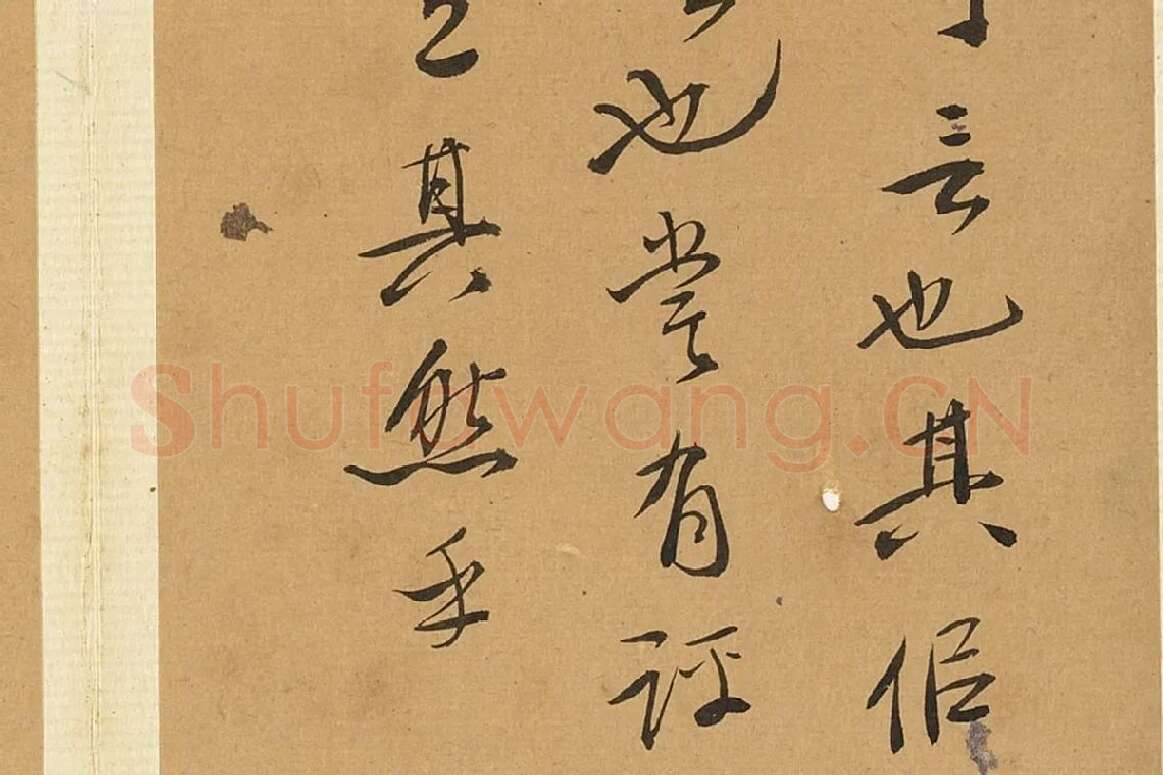 言也其俗
也尝有評
其然乎
Shufawang.CN